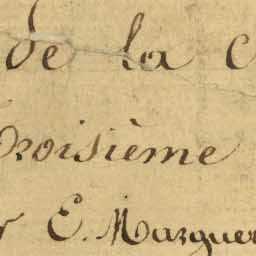 de la C
troisième
r E. Marguer